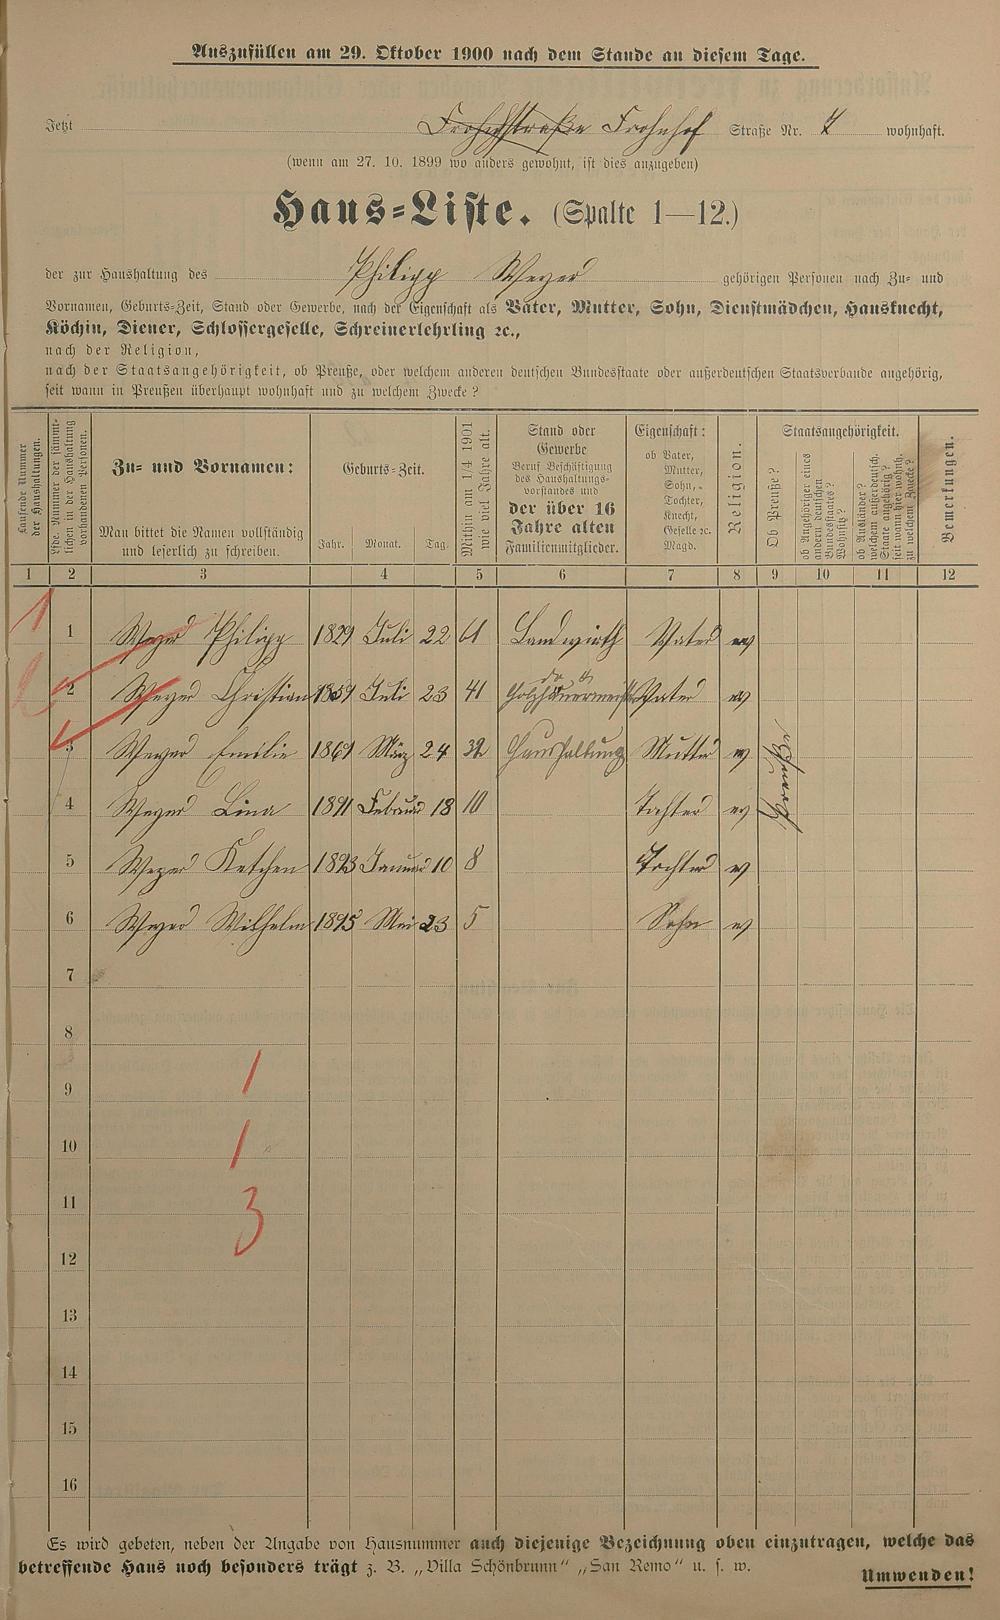 Auszufüllen am 29. Oktober 1900 nach dem Stande an diesem Tage.
Jetzt Frohnhof Straße Nr. 7 wohnhaft.
(wenn am 27. 10. 1899 wo anders gewohnt, ist dies anzugeben)
Haus-Liste. (Spalte 1—12.)
der zur Haushaltung des Philipp Weyer gehörigen Personen nach Zu- und
Vornamen, Geburts-Zeit, Stand oder Gewerbe, nach der Eigenschaft als Vater, Mutter, Sohn, Dienstmädchen, Hausknecht,
Köchin, Diener, Schlossergeselle, Schreinerlehrling ꝛc.,
nach der Religion,
nach der Staatsangehörigkeit, ob Preuße, oder welchem anderen deutschen Bundesstaate oder außerdeutschen Staatsverbande angehörig,
seit wann in Preußen überhaupt wohnhaft und zu welchem Zwecke?
Laufende Nummer der Haushaltungen.
Lfde. Nummer der sämmtlichen in der Haushaltung vorhandenen Personen.
Zu- und Vornamen:
Man bittet die Namen vollständig
und leserlich zu schreiben.
Geburts-Zeit.
Jahr. Monat. Tag.
Mithin am 1/4 1901
wie viel Jahre alt.
Stand oder
Gewerbe
Beruf Beschäftigung
des Haushaltungs-
vorstandes und
der über 16
Jahre alten
Familienmitglieder.
Eigenschaft:
ob Vater,
Mutter,
Sohn,
Tochter,
Knecht,
Geselle ꝛc.
Magd.
Religion.
Staatsangehörigkeit.
Ob Preuße?
ob Angehöriger eines
andern deutschen
Bundesstaates?
Wohnsitz?
ob Ausländer?
welchem außerdeutsch.
Staate angehörig?
seit wann hier wohnh.
zu welchem Zwecke?
Bemerkungen.
1 2 3 4 5 6 7 8 9 10 11 12
1 1 Weyer Philipp 1829 Juli 22 61 Landwirth Vater ev
2 Weyer Christian 1859 Juli 23 41 Holzhauermeister Vater ev
3 Weyer Emilie 1869 März 24 32 Haushaltung Mutter ev
4 Weyer Lina 1891 Februar 18 10 Tochter ev
5 Weyer Ketchen 1893 Januar 10 8 Tochter ev
6 Weyer Wilhelm 1895 Mai 23 5 Sohn ev
7
8
9 1
10 1
11 3
12
13
14
15
16
Es wird gebeten, neben der Angabe von Hausnummer auch diejenige Bezeichnung oben einzutragen, welche das
betreffende Haus noch besonders trägt z. B. „Villa Schönbrunn“ „San Remo“ u. s. w.
Umwenden!